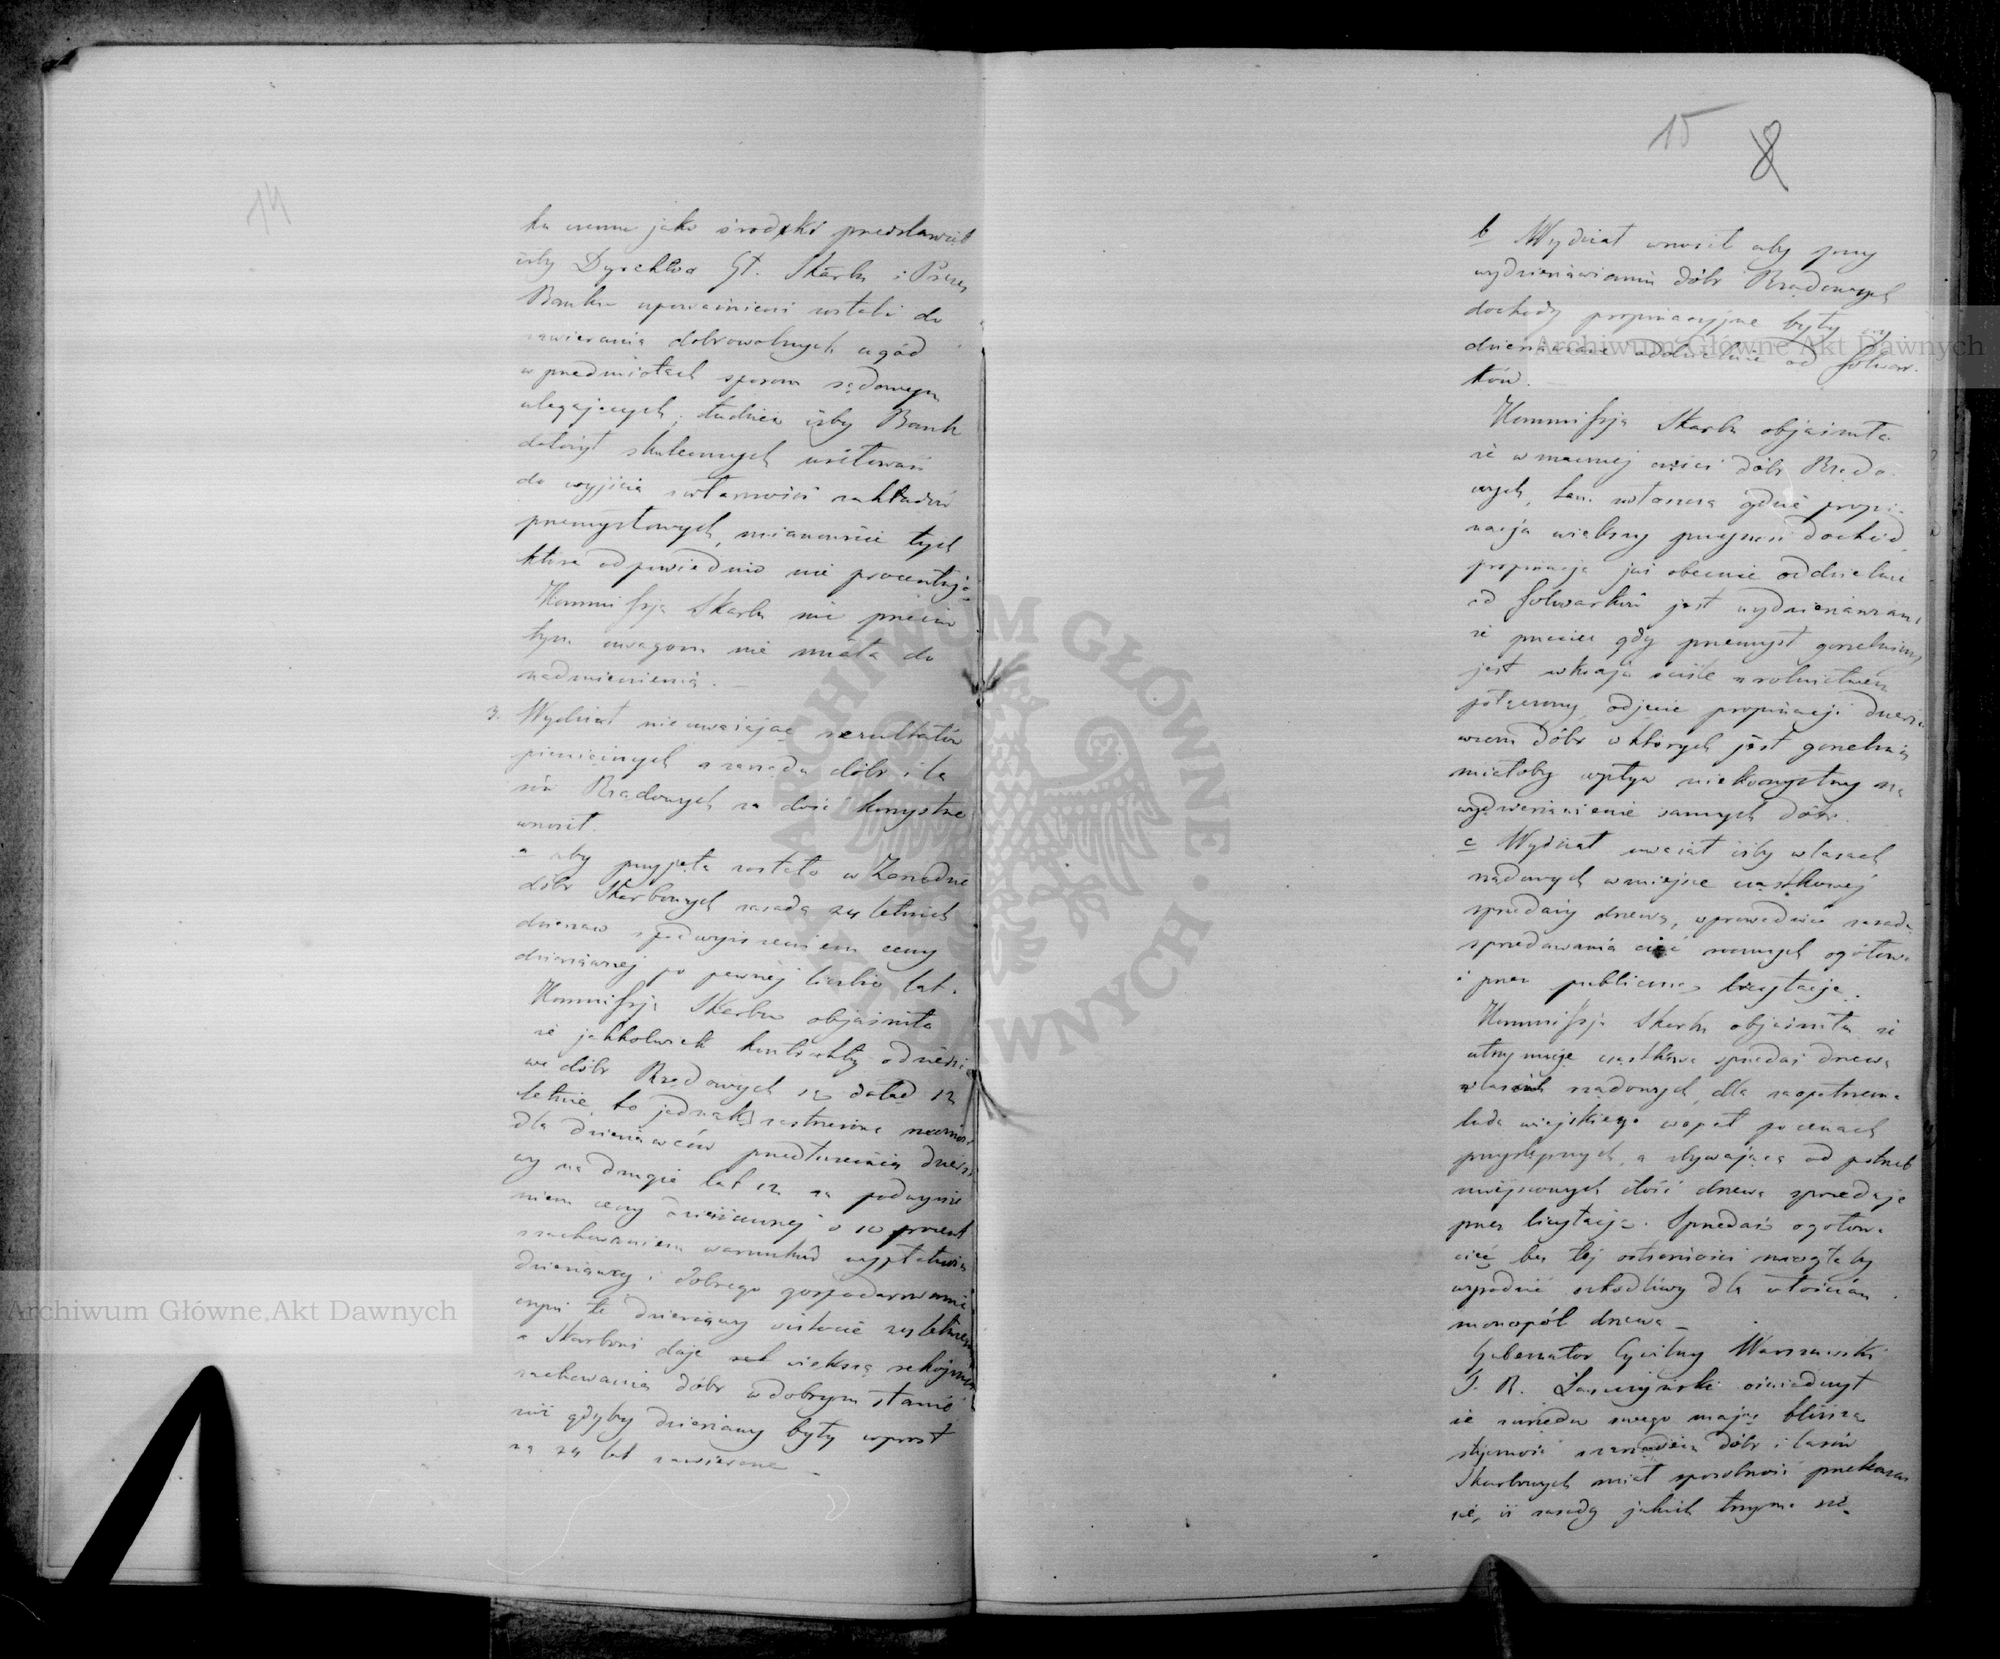 14
ku czemu jako środki przedstawił
iżby Dyrektor Gł. Skarbu i Prezes
Banku upoważnieni zostali do
zawierania dobrowolnych ugód
w przedmiotach sporom sądowym
ulegających, tudzież iżby Bank
dołożył skutecznych usiłowań
do wyjścia z własności zakładów
przemysłowych, mianowicie tych
które odpowiednio nie procentują.
Kommissja Skarbu nic przeciw
tym uwagom nie miała do
nadmienienia. —
3. Wydział nieuważając rezultatów
pieniężnych z zarządu dóbr i la
sów Rządowych za dość korzystne
wnosił.
a aby przyjęta została w Zarządzie
dóbr Skarbowych zasada 24 letnich
dzierżaw z podwyższeniem ceny
dzierżawnej po pewnej liczbie lat.
Kommissja Skarbu objaśniła
że jakkolwiek kontrakty o dzierża
wę dóbr Rządowych są dotąd 12
letnie, to jednak zastrzeżona
dla dzierżawców przedłużenia dzierża
wy na drugie lat 12 za podwyższe
niem ceny dzierżawnej o 10 procent
z zachowaniem warunków wypłatności
dzierżawy i dobrego gospodarowania
czyni te dzierżawy istocie 24 letniemi
a Skarbowi daje większą rękojmię
zachowania dóbr w dobrym stanie
niż gdyby dzierżawy były wprost
na 24 lat zawierane —
15 8
b Wydział wnosił aby przy
wydzierżawianiu dóbr Rządowych
dochody propinacyjne były wy
dzierżawiane oddzielnie od folwar-
ków. —
Kommissja Skarbu objaśniła
że w znacznej części dóbr Rządo
wych, tam zwłaszcza gdzie propi-
nacja większy przynosi dochód,
propinacja już obecnie oddzielnie
od folwarków jest wydzierżawiana,
że przeciez gdy przemysł gorzelniany
jest w kraju ściśle z rolnictwem
połączony, odjęcie propinacji dzierża
wcom dóbr w których jest gorzelnia
miałoby wpływ niekorzystny na
wydzierżawienie samych dóbr.
c Wydział uważał iżby w lasach
rządowych w miejsce cząstkowej
sprzedaży drzewa, wprowadzić zasadę
sprzedawania cięć rocznych ogółowo
i przez publiczną licytacją.
Kommissja Skarbu objaśniła że
utrzymuje cząstkową sprzedaż drzewa
w lasach rządowych, dla zaopatrzenia
ludu wiejskiego w opał po cenach
przystępnych, a zbywającą od potrzeb
miejscowych ilość drzewa sprzedaje
przez licytacją. Sprzedaż ogółowa
cięć bez tej ostrożności mogłaby
wyrodzić szkodliwy dla włościan
monopol drzewa —
Gubernator Cywilny Warszawski
J. R. Łaszczyński oświadczył
że z urzędu swego mając bliższą
styczność z zarządem dóbr i lasów
Skarbowych miał sposobność przekonać
się, iż zasady jakich trzyma się
Archiwum Główne Akt Dawnych
Archiwum Główne Akt Dawnych
ARCHIWUM GŁÓWNE AKT DAWNYCH